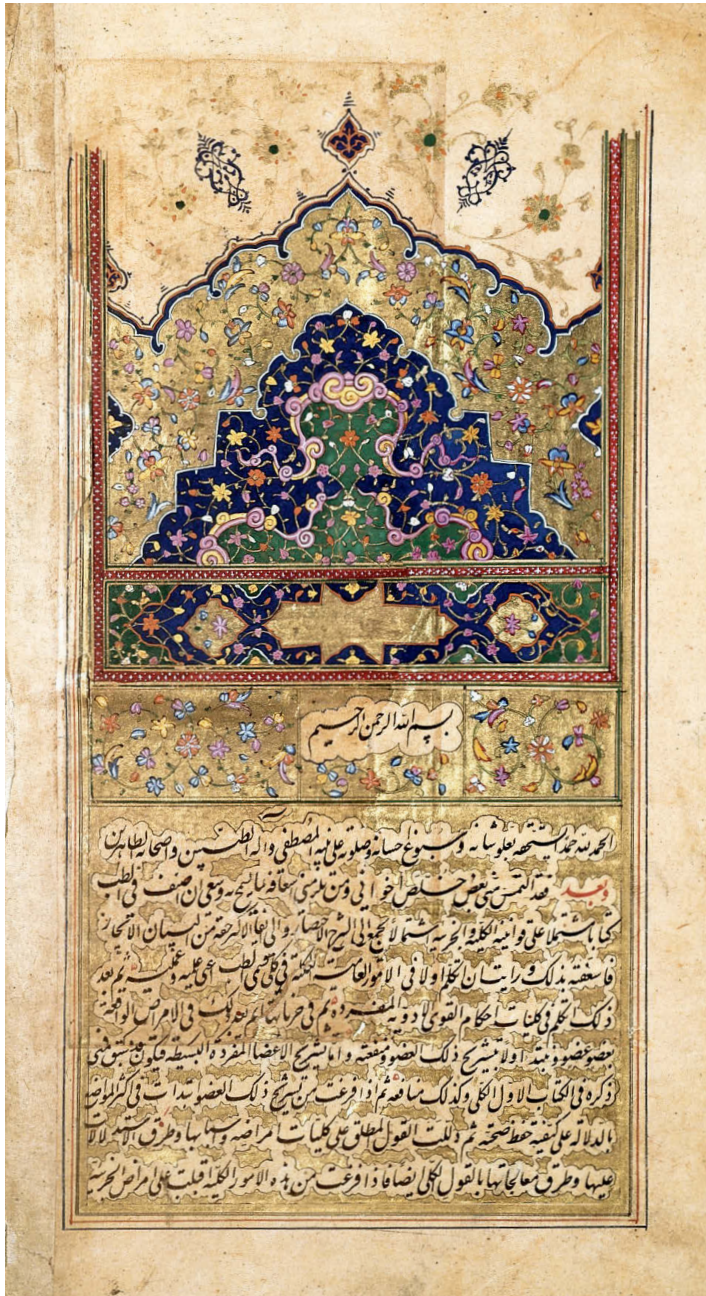 بسم الله الرحمن الرحيم
الحمد لله حمدا يستحقه بعلو شانه وسبوغ احسانه وصلوته على نبيه المصطفى واله الطيبين واصحابه الطاهرين
وبعد فقد التمس مني بعض خلص اخواني ومن يلزمني اسعافه بما يسمح به وسعي ان اصنف في الطب
كتابا مشتملا على قوانينه الكلية والجزئية اشتمالا يجمع الى الشرح الاختصار والى ايفاء الاكثر حقه من البيان الايجاز
فاسعفته بذلك ورايت ان اتكلم اولا في الامور العامة الكلية في كلي قسمي الطب اعني علمية وعملية ثم بعد
ذلك اتكلم في كليات احكام القوى الادوية المفردة ثم في جزياتها ثم بعد ذلك في الامراض الواقعة
بعضو عضو فنبتدا اولا بتشريح ذلك العضو ومنفعته واما تشريح الاعضا المفردة البسيطة فيكون قد سبق مني
ذكره في الكتاب الاول الكلي وكذلك منافعه ثم اذا فرغت من تشريح ذلك العضو ابتدات في اكثر المواضع
بالدلالة على كيفية حفظ صحته ثم دللت القول المطلق على كليات امراضه واسبابها وطرق الاستدلالات
عليها وطرق معالجاتها بالقول الكلي ايضا فاذا فرغت من هذه الامور الكلية اقبلت على امراض الجزئية